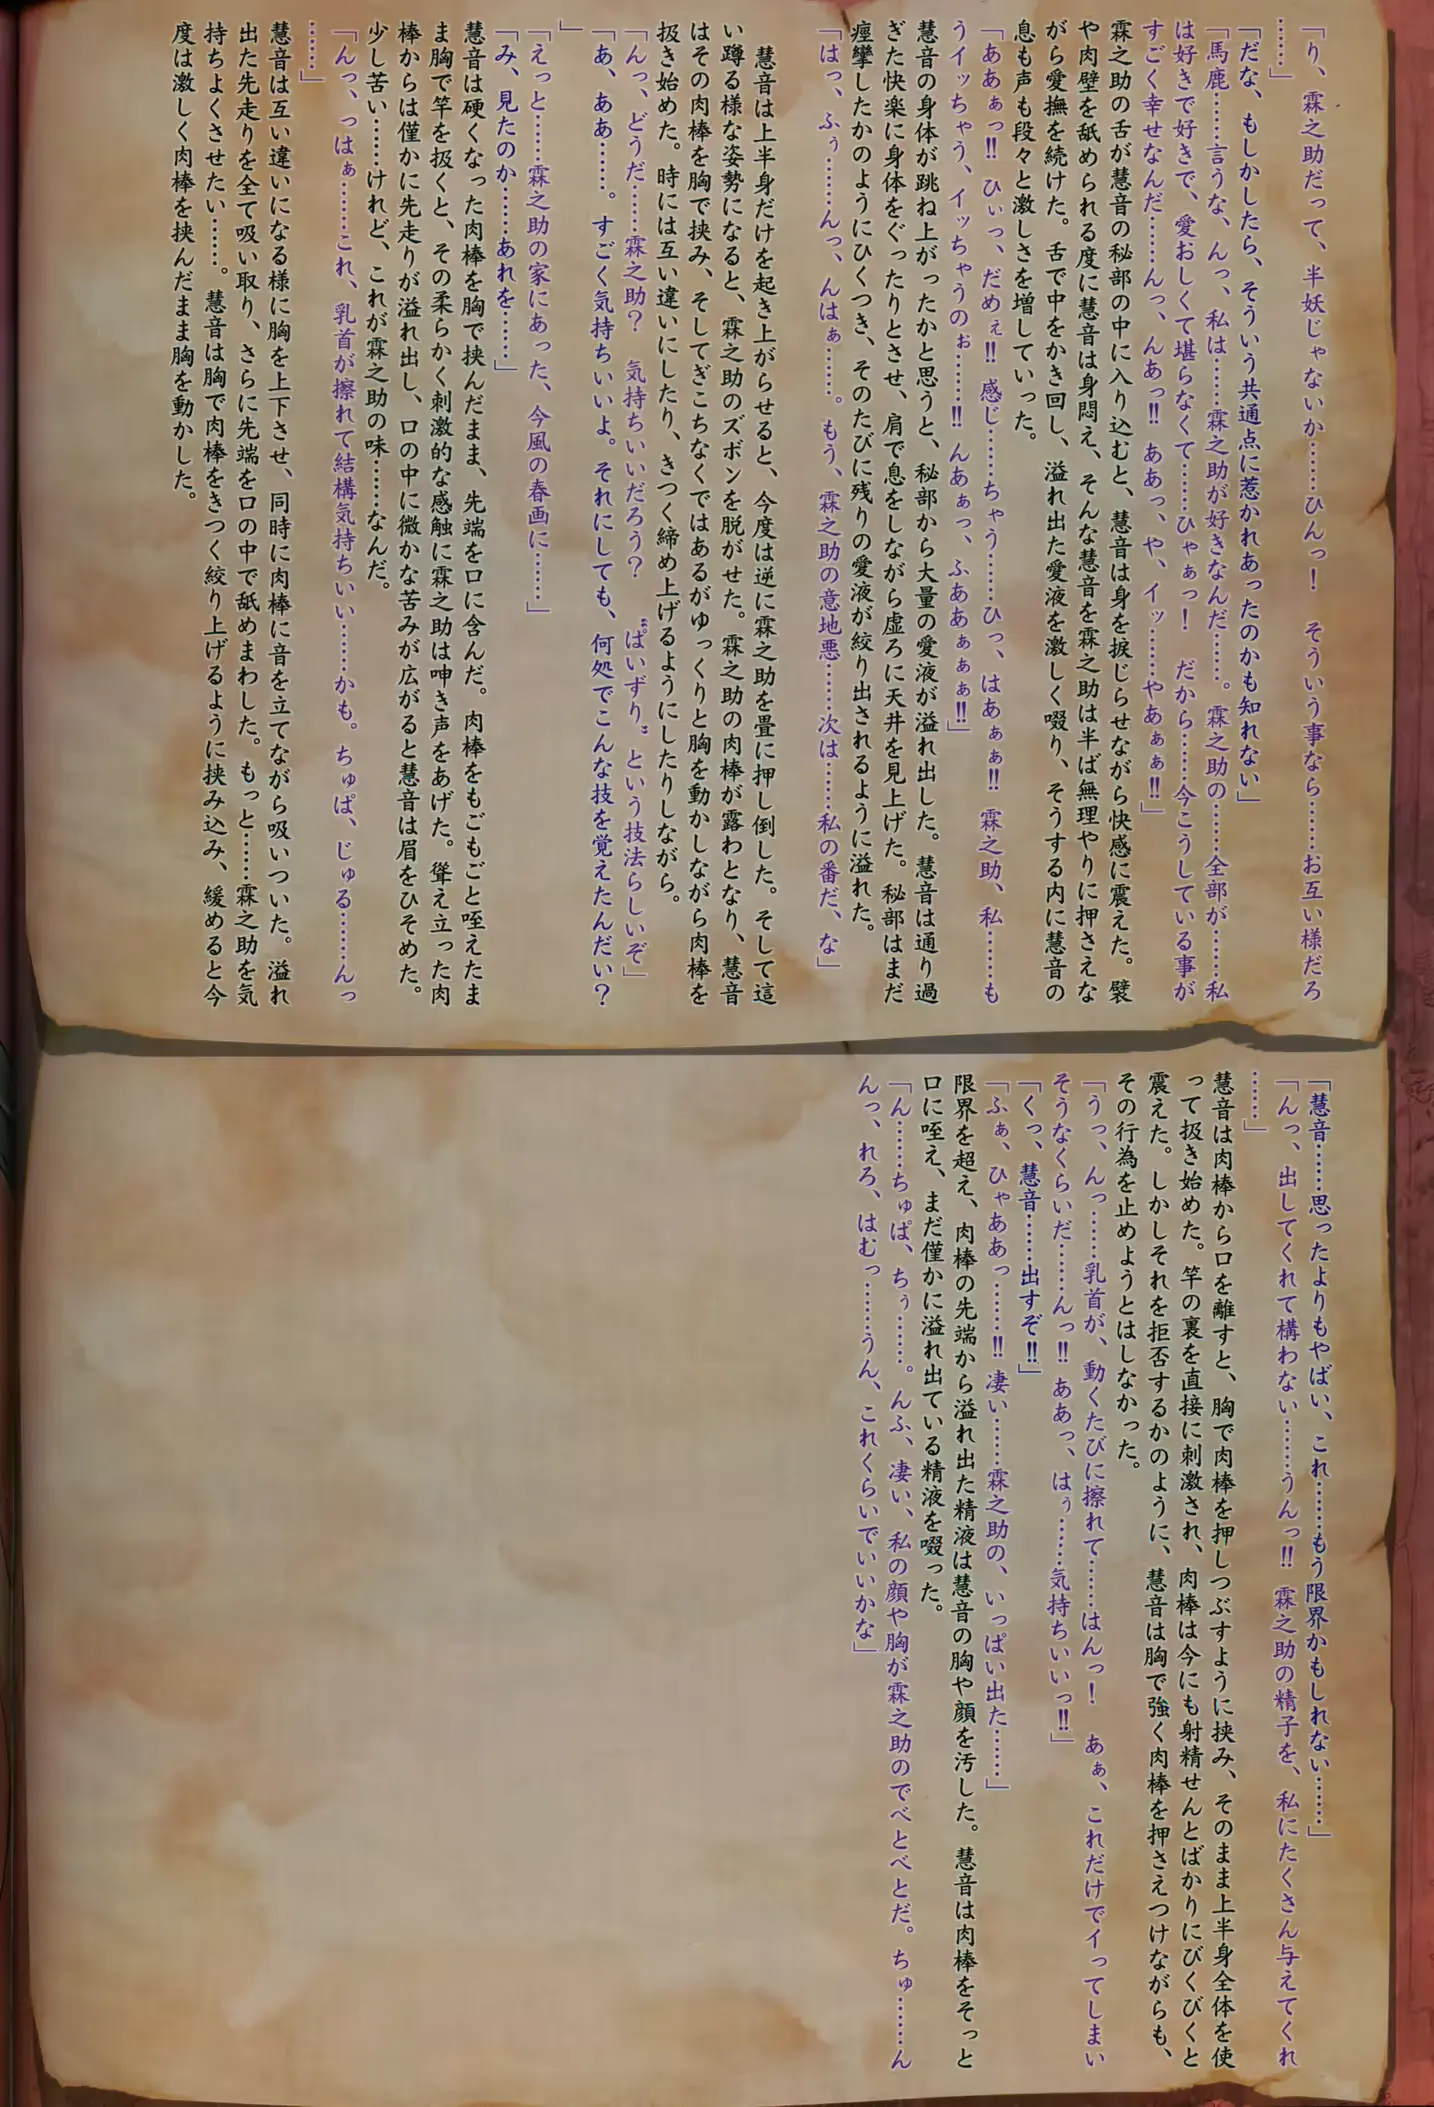 「り、霖之助だって、半妖じゃないか……ひんっ！　そういう事なら……お互い様だろ
……」
「だな、もしかしたら、そういう共通点に惹かれあったのかも知れない」
「馬鹿……言うな、んっ、私は……霖之助が好きなんだ……。霖之助の……全部が……私
は好きで好きで、愛おしくて堪らなくて……ひゃぁっ！　だから……今こうしている事が
すごく幸せなんだ……んっ、んあっ!!　ああっ、や、イッ……やあぁぁ!!」
霖之助の舌が慧音の秘部の中に入り込むと、慧音は身を捩じらせながら快感に震えた。襞
や肉壁を舐められる度に慧音は身悶え、そんな慧音を霖之助は半ば無理やりに押さえな
がら愛撫を続けた。舌で中をかき回し、溢れ出た愛液を激しく啜り、そうする内に慧音の
息も声も段々と激しさを増していった。
「ああぁっ!!　ひぃっ、だめぇ!!　感じ……ちゃう……ひっ、はあぁぁ!!　霖之助、私……も
うイッちゃう、イッちゃうのぉ……!!　んあぁっ、ふああぁぁぁ!!」
慧音の身体が跳ね上がったかと思うと、秘部から大量の愛液が溢れ出した。慧音は通り過
ぎた快楽に身体をぐったりとさせ、肩で息をしながら虚ろに天井を見上げた。秘部はまだ
痙攣したかのようにひくつき、そのたびに残りの愛液が絞り出されるように溢れた。
「はっ、ふぅ……んっ、んはぁ……。もう、霖之助の意地悪……次は……私の番だ、な」
　慧音は上半身だけを起き上がらせると、今度は逆に霖之助を畳に押し倒した。そして這
い蹲る様な姿勢になると、霖之助のズボンを脱がせた。霖之助の肉棒が露わとなり、慧音
はその肉棒を胸で挟み、そしてぎこちなくではあるがゆっくりと胸を動かしながら肉棒を
扱き始めた。時には互い違いにしたり、きつく締め上げるようにしたりしながら。
「んっ、どうだ……霖之助？　気持ちいいだろう？　〝ぱいずり〟という技法らしいぞ」
「あ、ああ……。すごく気持ちいいよ。それにしても、何処でこんな技を覚えたんだい？
」
「えっと……霖之助の家にあった、今風の春画に……」
「み、見たのか……あれを……」
慧音は硬くなった肉棒を胸で挟んだまま、先端を口に含んだ。肉棒をもごもごと咥えたま
ま胸で竿を扱くと、その柔らかく刺激的な感触に霖之助は呻き声をあげた。聳え立った肉
棒からは僅かに先走りが溢れ出し、口の中に微かな苦みが広がると慧音は眉をひそめた。
少し苦い……けれど、これが霖之助の味……なんだ。
「んっ、っはぁ……これ、乳首が擦れて結構気持ちいい……かも。ちゅぱ、じゅる……んっ
……」
慧音は互い違いになる様に胸を上下させ、同時に肉棒に音を立てながら吸いついた。溢れ
出た先走りを全て吸い取り、さらに先端を口の中で舐めまわした。もっと……霖之助を気
持ちよくさせたい……。慧音は胸で肉棒をきつく絞り上げるように挟み込み、緩めると今
度は激しく肉棒を挟んだまま胸を動かした。
「慧音……思ったよりもやばい、これ……もう限界かもしれない……」
「んっ、出してくれて構わない……うんっ!!　霖之助の精子を、私にたくさん与えてくれ
……」
慧音は肉棒から口を離すと、胸で肉棒を押しつぶすように挟み、そのまま上半身全体を使
って扱き始めた。竿の裏を直接に刺激され、肉棒は今にも射精せんとばかりにびくびくと
震えた。しかしそれを拒否するかのように、慧音は胸で強く肉棒を押さえつけながらも、
その行為を止めようとはしなかった。
「うっ、んっ……乳首が、動くたびに擦れて……はんっ！　あぁ、これだけでイってしまい
そうなくらいだ……んっ!!　ああっ、はぅ……気持ちいいっ!!」
「くっ、慧音……出すぞ!!」
「ふぁ、ひゃああっ……!!　凄い……霖之助の、いっぱい出た……」
限界を超え、肉棒の先端から溢れ出た精液は慧音の胸や顔を汚した。慧音は肉棒をそっと
口に咥え、まだ僅かに溢れ出ている精液を啜った。
「ん……ちゅぱ、ちぅ……。んふ、凄い、私の顔や胸が霖之助のでべとべとだ。ちゅ……ん
んっ、れろ、はむっ……うん、これくらいでいいかな」